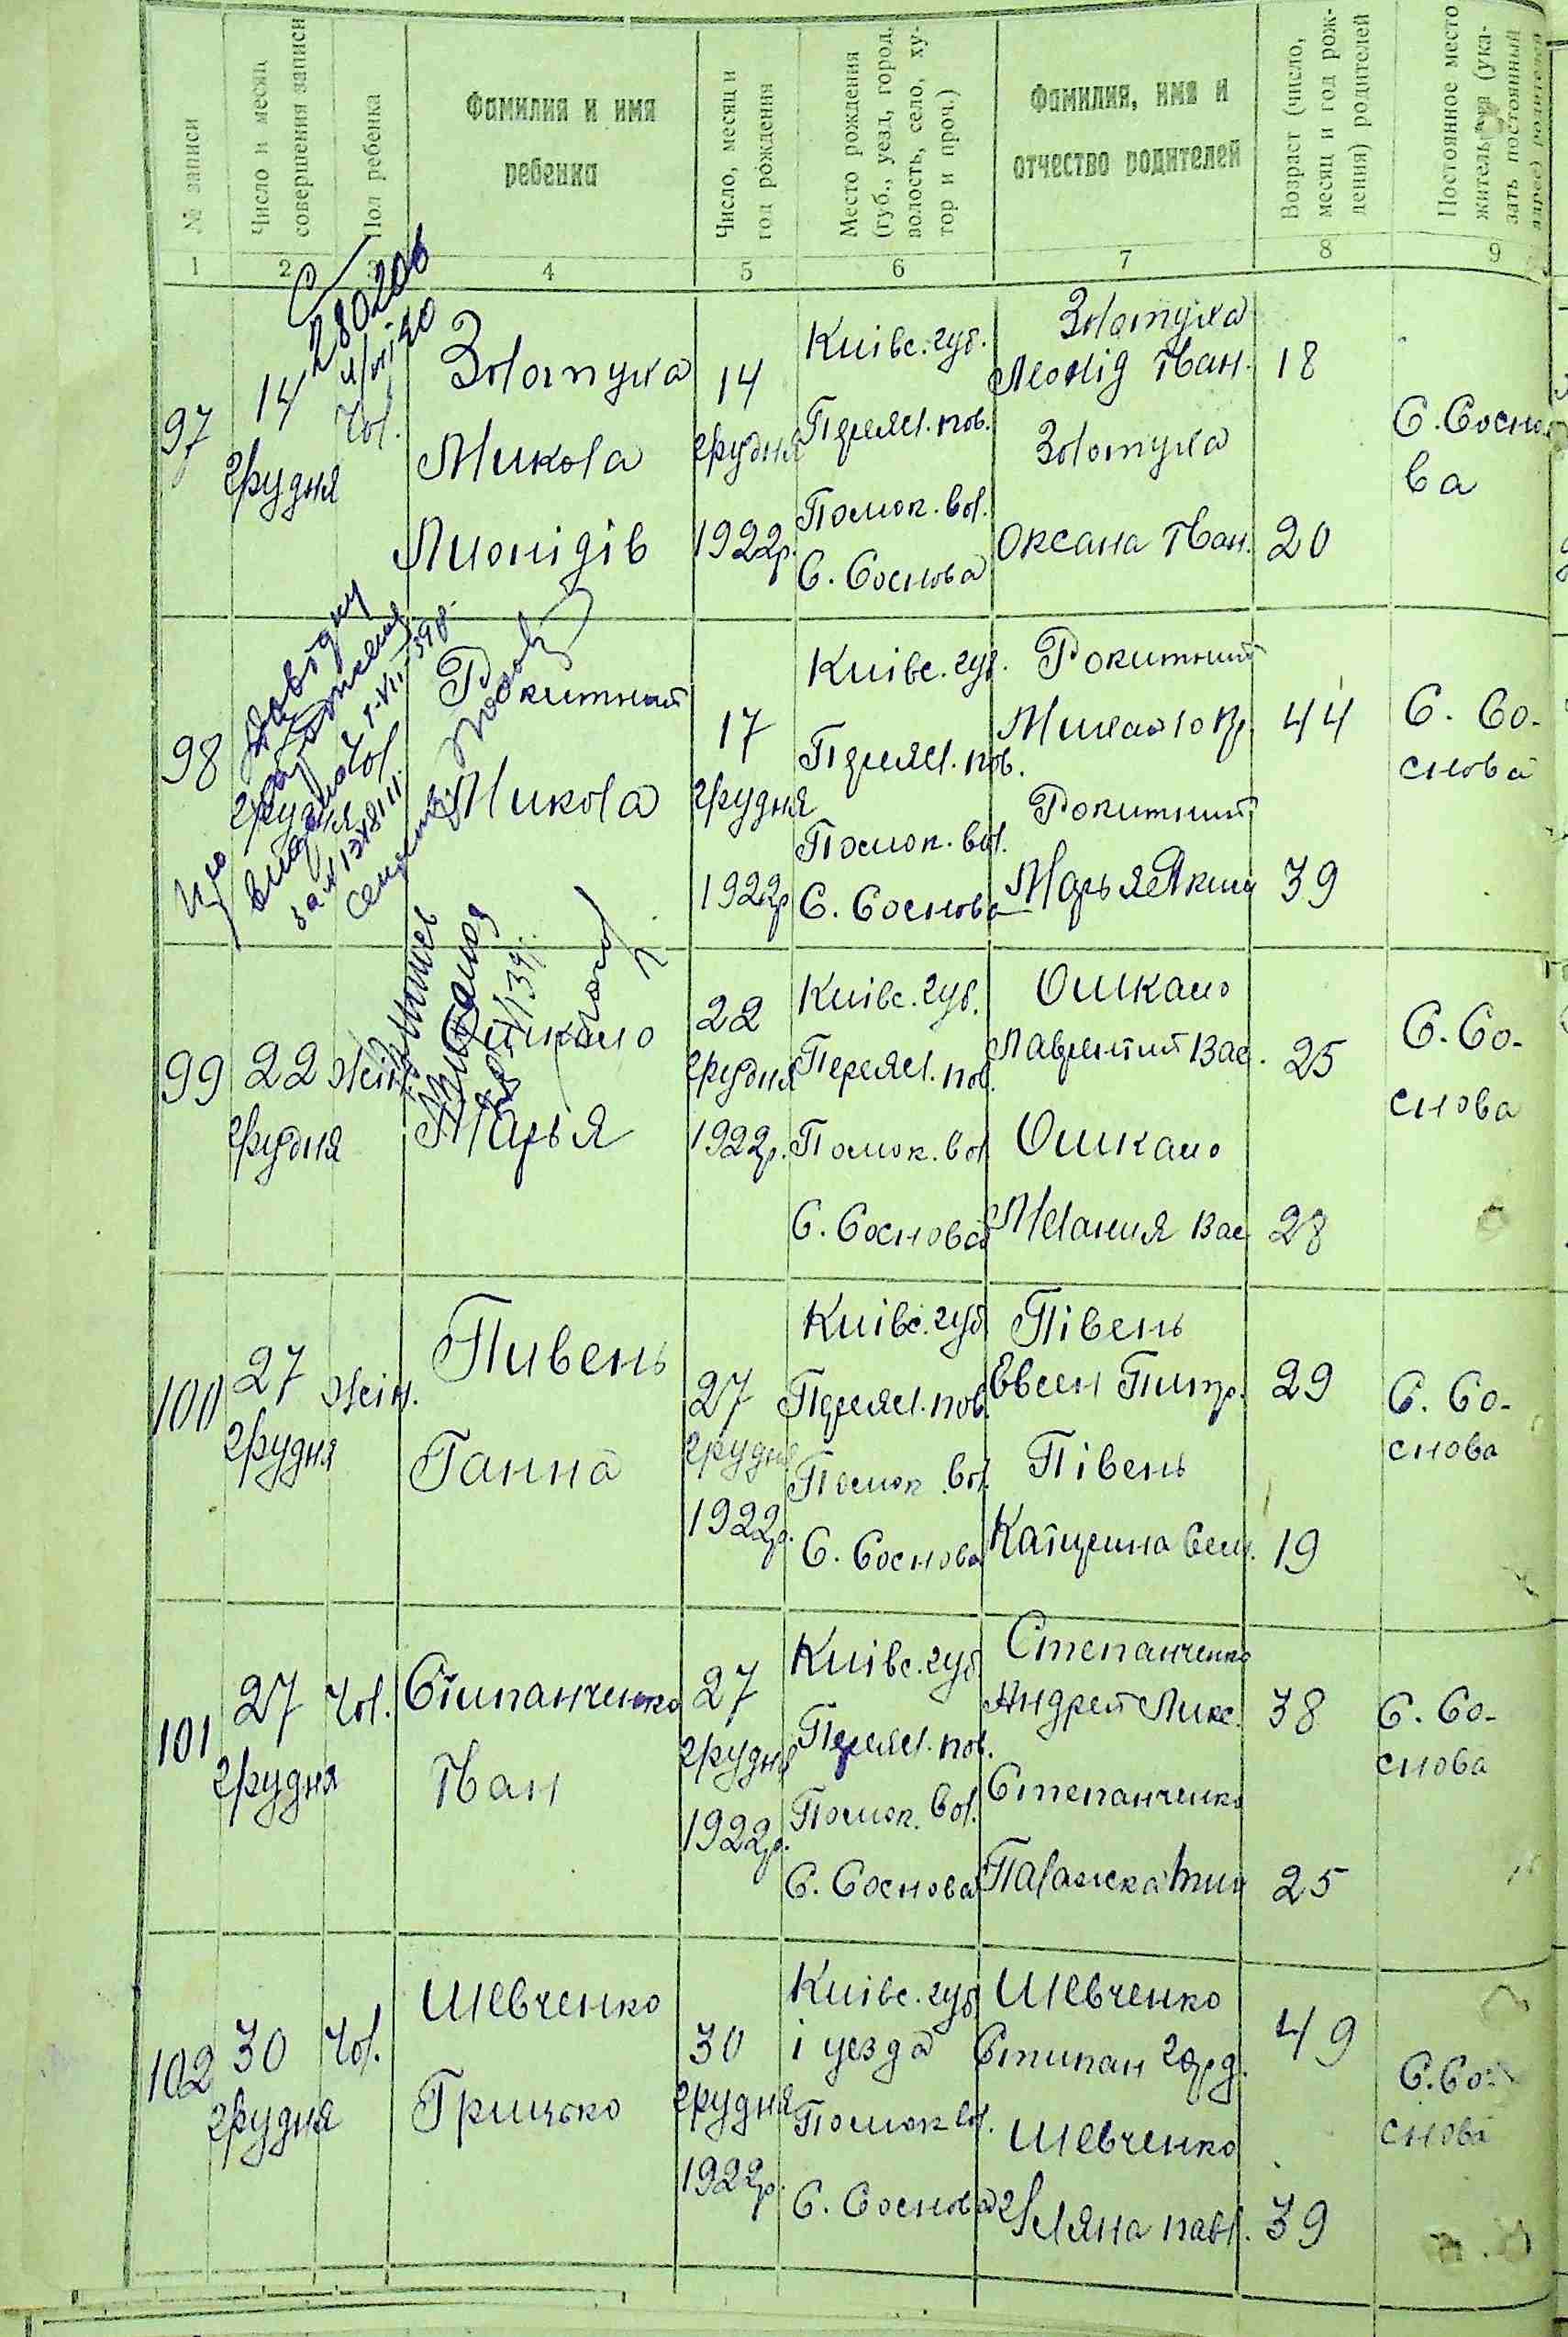 № записи
Число и месяц
совершения записи
Пол ребенка
Фамилия и имя
ребенка
Число, месяц и
год рождения
Место рождения
(губ., уезд, город,
волость, село, ху-
тор и проч.)
Фамилия, имя и
отчество родителей
Возраст (число,
месяц и год рож-
дения) родителей
Постоянное место
жительства (ука-
зать постоянный
адрес) родителей
1 2 3 4 5 6 7 8 9
280206
97
14
грудня
Чол.
Золотуха
Микола
Леонідів
14
грудня
1922р.
Київс. губ.
Переясл. пов.
Помок. вол.
С. Соснова
Золотуха
Леонід Іван.
Золотуха
Оксана Іван.
18
20
С. Сосно
ва
98
грудня
Чол
Рокитний
Микола
17
грудня
1922р
Київс. губ.
Переясл. пов.
Помок. вол.
С. Соснова
Рокитний
Михайло
Рокитний
Марья Яким
44
39
С. Со-
снова
99
22
грудня
Жін
Ошкало
Марья
22
грудня
1922р.
Київс. губ.
Переясл. пов.
Помок. вол
С. Соснова
Ошкало
Лаврентий Вас.
Ошкало
Мелания Вас
25
28
С. Со-
снова
100
27
грудня
Жін.
Пивень
Ганна
27
грудня
1922р.
Київс. губ
Переясл. пов.
Помок. вол.
С. Соснова
Півень
Евсен Петр.
Півень
Катерина Сем.
29
19
С. Со-
снова
101
27
грудня
Чол.
Степанченко
Іван
27
грудня
1922р.
Київс. губ
Переясл. пов.
Помок. вол.
С. Соснова
Степанченко
Андрей Алекс.
Степанченко
Палажка Тим
38
25
С. Со-
снова
102
30
грудня
Чол.
Шевченко
Грицько
30
грудня
1922р.
Київс. губ
і уезда
Помок вол.
С. Соснова
Шевченко
Степан
Шевченко
Уляна Павл.
49
39
С. Со-
снова